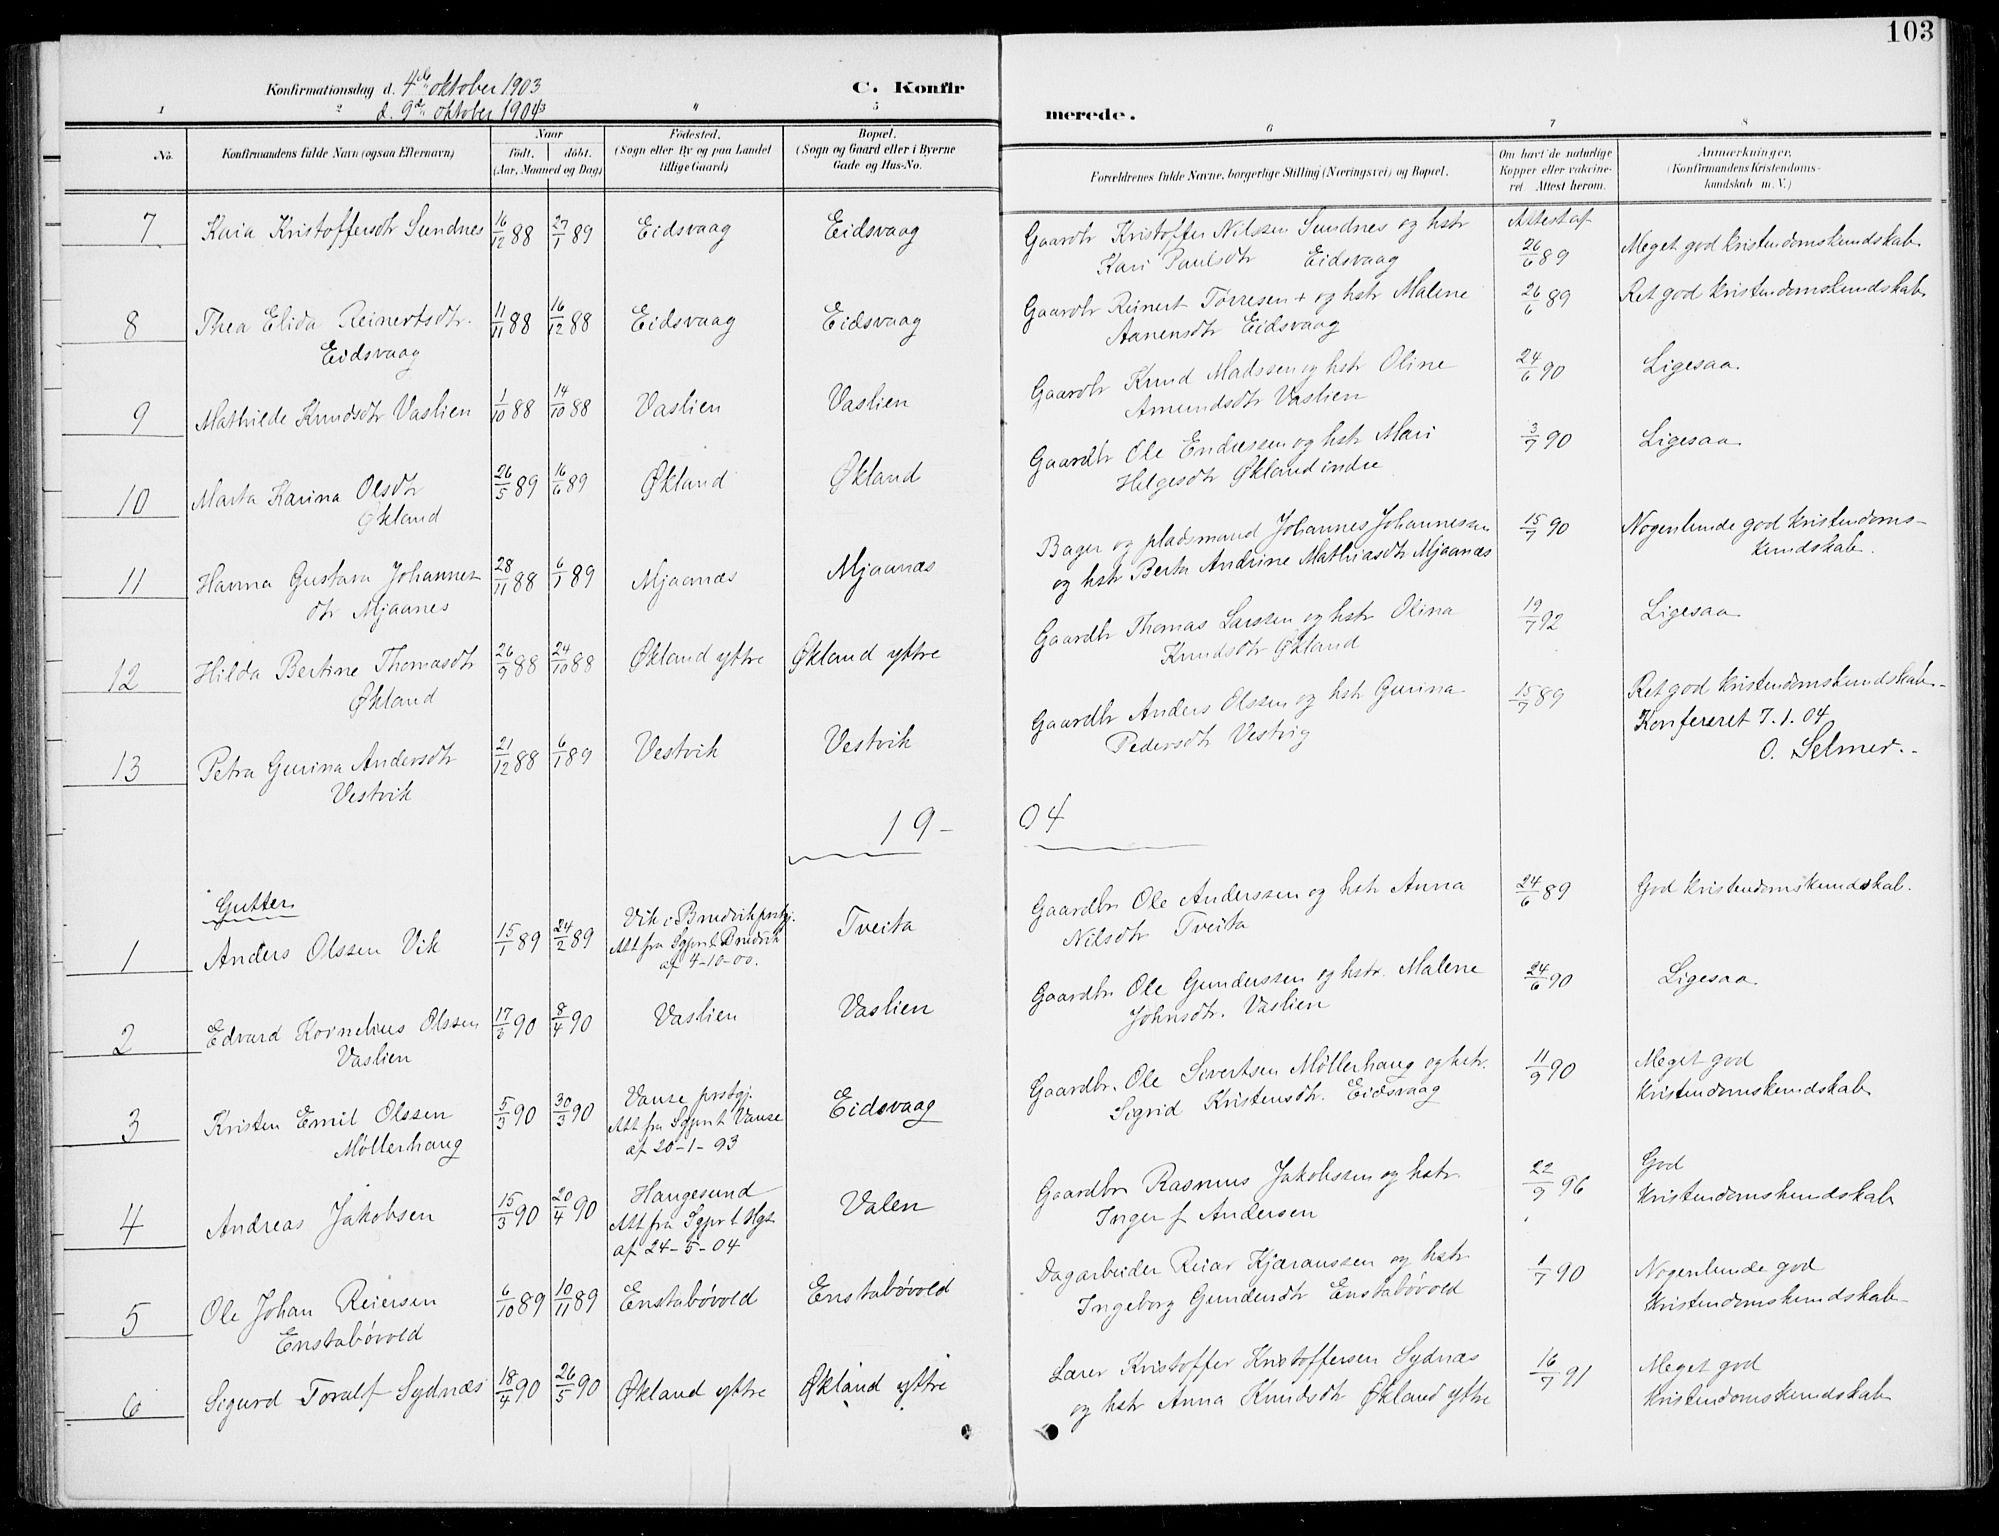 103
Konfirmationsdag d. 4de oktober 1903
d. 9de oktober 1904
C. Konfir
merede.
1
2
3
4
5
6
7
8
No.
Konfirmandens fulde Navn (ogsaa Efternavn)
Naar
födt.
döbt.
(Aar, Maaned og Dag)
Födested.
(Sogn eller By og paa Landet
tillige Gaard)
Bopæl.
(Sogn og Gaard eller i Byerne
Gade og Hus-No.
Forældrenes fulde Navne, borgerlige Stilling (Næringsvei) og Bopæl.
Om havt de naturlige
Kopper eller vakcine-
ret Attest herom.
Anmærkninger,
(Konfirmandens Kristendoms-
kundskab m. V.)
7 Kaia Kristoffersdtr Sundnes 16/12 88 27/1 89 Eidsvaag Eidsvaag Gaardbr Kristoffer Nilssen Sundnes og hstr Attest af
Kari Paulsdtr Eidsvaag 26/6 89 Meget god kristendomskundskab
8 Thea Elida Reinertsdtr. 11/11 88 16/12 88 Eidsvaag Eidsvaag Gaardbr Reinert Tørresen + og hstr Malene 26/6 89 Ret god kristendomskundskab
Eidsvaag Aanensdtr Eidsvaag
9 Mathilde Knudsdtr Vaslien 1/10 88 14/10 88 Vaslien Vaslien Gaardbr Knud Madssen og hstr Oline 24/6 90 Ligesaa
Amundsdtr Vaslien
10 Marta Karina Olsdtr 26/5 89 16/6 89 Økland Økland Gaardbr Ole Endressen og hstr Mari 3/7 90 Ligesaa
Økland Helgesdtr Økland indre
11 Hanna Gustava Johannes 28/11 88 6/1 89 Mjaanæs Mjaanæs Bager og pladsmand Johannes Johannessen 15/7 90 Nogenlunde god kristendoms-
dtr Mjaanes og hstr Berta Andrine Mathiasdtr Mjaanæs kundskab.
12 Hilda Bertine Thomasdtr 26/9 88 24/10 88 Økland yttre Økland yttre Gaardbr Thomas Larssen og hstr Olina 19/7 92 Ligesaa
Økland Knudsdtr Økland
13 Petra Gurina Andersdtr 21/12 88 6/1 89 Vestvik Vestvik Gaardbr Anders Olssen og hstr Gurina 15/7 89 Ret god kristendomskundskab
Vestvik Pedersdtr Vestvig Konfereret 7.1.04
O. Selmer.
19-
04
Gutter
1 Anders Olssen Vik 15/1 89 24/2 89 Vik i Bruvik prstgj. Tveita Gaardbr Ole Anderssen og hstr Anna 24/6 89 God kristendomskundskab.
Att fra Sgpr t Bruvik Nilsdtr Tveita
af 4-10-00.
2 Edvard Kornelius Olssen 17/3 90 8/4 90 Vaslien Vaslien Gaardbr. Ole Gunderssen og hstr. Malene 24/6 90 Ligesaa
Vaslien Johnsdtr. Vaslien
3 Kristen Emil Olssen 5/3 90 30/3 90 Vanse prstgj. Eidsvaag Gaardbr. Ole Sivertsen Møllerhaug og hstr. 11/9 90 Meget god
Møllerhaug Att fra Sgpr t Vanse Sigrid Kristensdtr. Eidsvaag kristendomskundskab
af 20-1-93
4 Andreas Jakobsen 15/3 90 20/4 90 Haugesund Valen Gaardbr Rasmus Jakobssen og hstr 22/9 96 God
Att fra Sgpr t Hgs Inger f Andersen kristendomskundskab
af 24-5-04
5 Ole Johan Reiersen 6/10 89 10/11 89 Enstabøvold Enstabøvold Dagarbeider Reiar Kjæranssen og hstr 1/7 90 Nogenlunde god
Enstabøvold Ingeborg Gundersdtr Enstabøvold kristendomskundskab
6 Sigurd Toralf Sydnæs 18/4 90 26/5 90 Økland yttre Økland yttre Lærer Kristoffer Kristoffersen Sydnæs 16/7 91 Meget god
og hstr Anna Knudsdtr Økland yttre kristendomskundskab